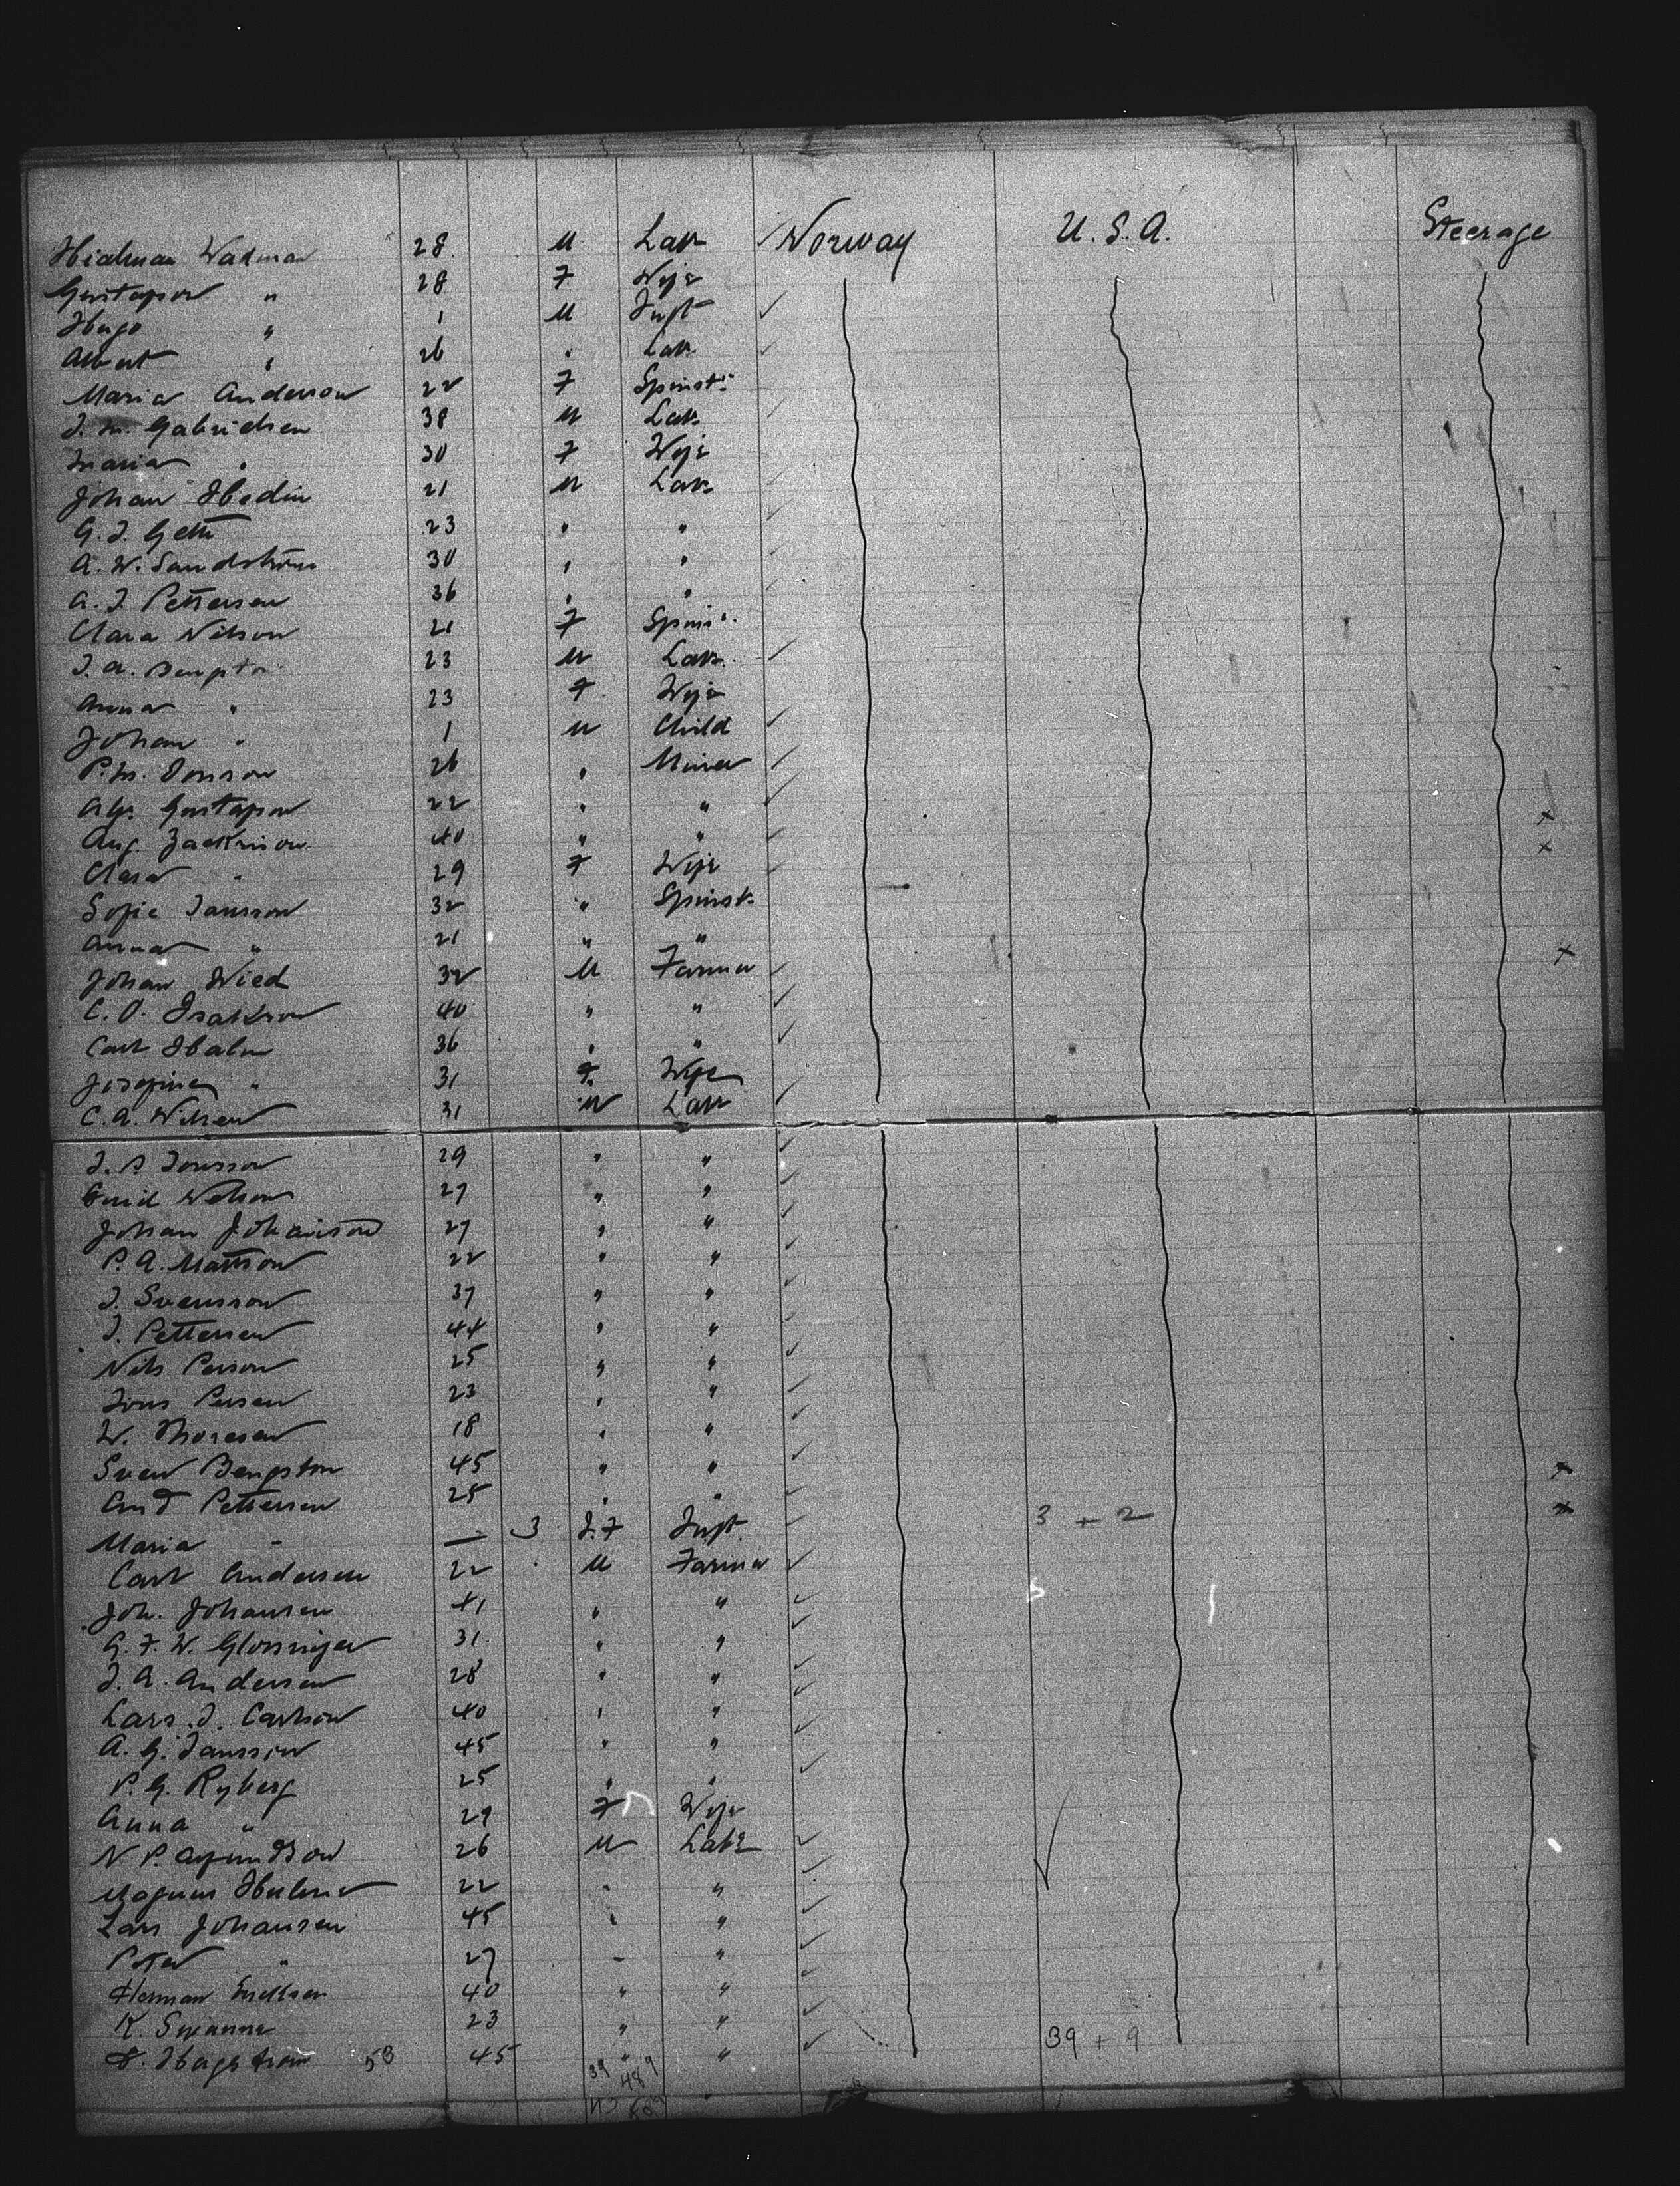 Hialmar Walman 28 M Labr Norway U.S.A. Steerage
Gustafson " 28 F Wife
Hugo " 1 M Inft
Albert " 26 " Labr
Maria Anderson 22 F Spinstr
J. M. Gabrielsen 38 M Labr
Maria " 30 F Wife
Johan Hedin 21 M Labr
G. J. Geth 23 " "
A. W. Sandström 30 " "
A. J. Pettersen 36 " "
Clara Nilson 21 F Spinst
J. A. Bengpton 23 M Labr
Anna " 23 F Wife
Johan " 1 M Child
P. M. Jonson 26 " Miner
Alf. Gustafson 22 " "
Aug. Zackrison 40 " "
Clara " 29 F Wife
Sofie Jansson 32 " Spinstr
Anna " 21 " "
Johan Wied 32 M Farmer
C. O. Isakson 40 " "
Carl Halm 36 " "
Josefine " 31 F Wife
C. A. Nilsen 31 M Labr
J. P. Jonsson 29 " "
Nelson 27 " "
Johan Johanison 27 " "
P. A. Mattson 22 " "
J. Svensson 37 " "
J. Pettersen 44 " "
Nils Person 25 " "
Jons Persen 23 " "
W. Thoresen 18 " "
Sven Bengston 45 " "
And Pettersen 25 " "
Maria " — 3 J.F Inft 3 + 2
Carl Andersen 22 M Farmer
Joh. Johansen 41 " "
G. F. W. Glossniger 31 " "
J. A. Andersen 28 " "
Lars J. Carlson 40 " "
A. G. Jansson 45 " "
P. G. Ryberg 25 " "
Anna " 29 F Wife
N. P. 26 M Labr
Magnus 22 " "
Lars Johansen 45 " "
Peter " 27 " "
Herman Ericksen 40 " "
K. Swanne 23 " "
Hagstrom 53 45 " " 39 + 9
39 9
48